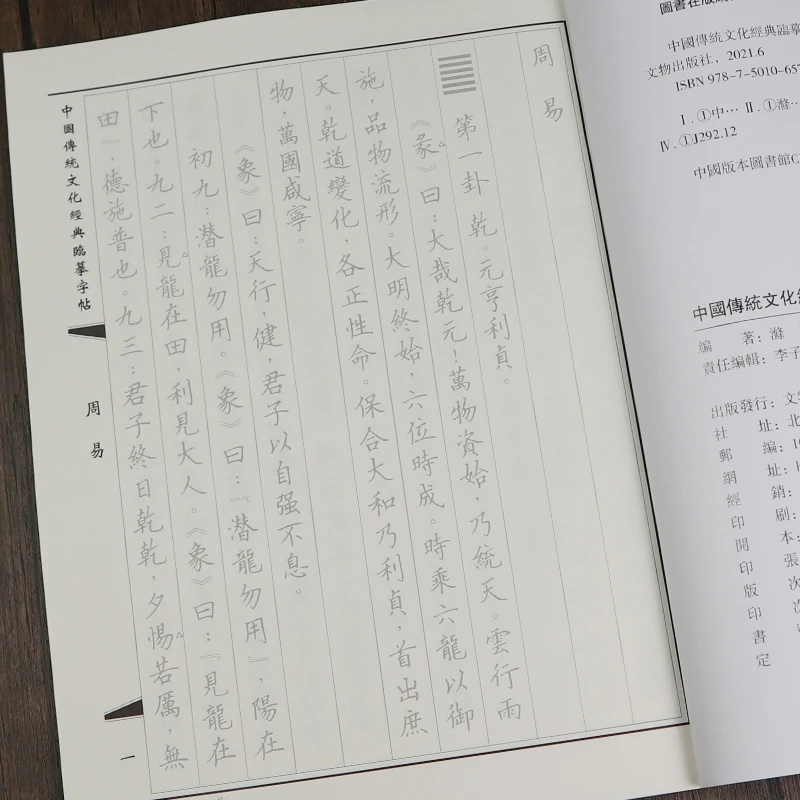 周易
第一卦 乾。元亨利貞。
《彖》曰:大哉乾元!萬物資始,乃統天。雲行雨
施,品物流形。大明終始,六位時成。時乘六龍以御
天。乾道變化,各正性命。保合大和乃利貞,首出庶
物,萬國咸寧。
《象》曰:天行,健,君子以自强不息。
初九:潜龍勿用。《象》曰:『潜龍勿用』,陽在
下也。九二:見龍在田,利見大人。《象》曰:『見龍在
田』,德施普也。九三:君子終日乾乾,夕惕若厲,無
中國傳統文化經典臨摹字帖
周易
一
圖書在版
中國傳統文化經典臨摹
文物出版社,2021.6
ISBN 978-7-5010-657
Ⅰ.①中… Ⅱ.①滌…
Ⅳ.①J292.12
中國版本圖書館C
中國傳統文化
編 著:滌
責任編輯:李子
出版發行:文
社 址:北
郵 編:1
網 址:
經 銷:
印 刷:
開 本:
印 張
版 次
印 次
書
定